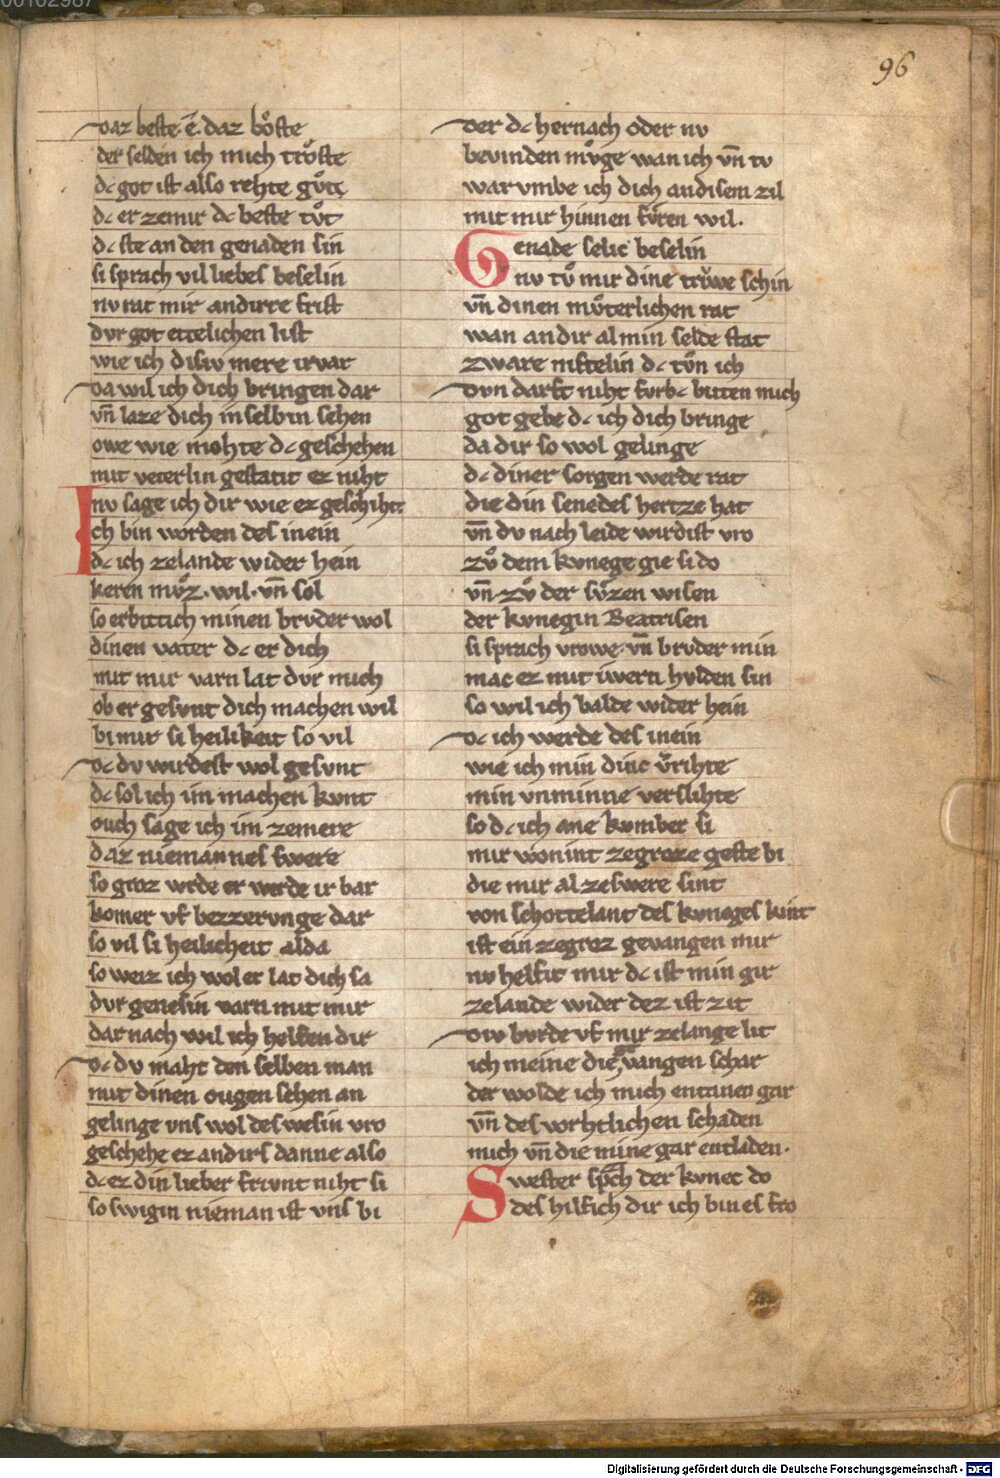 00102987
96
daz beste .e. daz boͤste
der selden ich mich troͤste
dc got ist also rehte guͦte
dc er zemir dc beste tuͦt
dc ste an den genaden sin
si sprach vil liebes beselin
nv rat mir andirre frist
dvr got ettelichen list
wie ich disiv mere irvar
da wil ich dich bringen dar
vn̄ laze dich in selbin sehen
owe wie mohte dc geschehen
mit veterlin gestatit ez niht
nv sage ich dir wie ez geschiht.
Ich bin worden des inein
dc ich zelande wider hein
keren muͦz. wil. vn̄ sol
so erbittich minen brvder wol
dinen vater dc er dich
mit mir varn lat dvr mich
ob er gesvnt dich machen wil
bi mir si heilikeit so vil
dc dv wirdest wol gesvnt
dc sol ich im machen kvnt
ouch sage ich im zemere
daz niemannes swere
so groz wrde er werde ir bar
komer vf bezzervnge dar
so vil si heilicheit alda
so weiz ich wol er lat dich sa
dvr genesin varn mit mir
dar nach wil ich helfen dir
dc dv maht den selben man
mit dinen ougen sehen an
gelinge vns wol des wesin vro
geschehe ez andirs danne also
dc ez din lieber frivnt niht si
so swigin nieman ist vns bi
der dc hernach oder nv
bevinden mvͦge wan ich vn̄ tv
war vmbe ich dich an disem zil
mit mir hinnen fvͦren wil.
Genade selic beselin
nv tuͦ mir dine trv̓we schin
vn̄ dinen muͦterlichen rat
wan an dir al min selde stat
zware niftelin dc tuͦn ich
dvn darft niht fvrbc bitten mich
got gebe dc ich dich bringe
da dir so wol gelinge
dc diner sorgen werde rat
die din senedes hertze hat
vn̄ dv nach leide wirdist vro
zvͦ dem kvnege gie si do
vn̄ zvͦ der svͦzen wisen
der kvnegin Beatrisen
si sprach vrowe. vn̄ brvder min
mac ez mit iwern hvlden sin
so wil ich balde wider hein
dc ich werde des inein
wie ich min dinc v̓rihte
min vnminne verslihte
so dc ich ane kvmber si
mir wonint zegroze geste bi
die mir al zeswere sint
von schottelant des kvneges kint
ist ein zegroz gevangen mir
nv helfit mir dc ist min gir
zelande wider dez ist zit
div bvrde vf mir zelange lit
ich meine die gevangen schar
der wolde ich mich entanen gar
vn̄ des vorhtlichen schaden
mich vn̄ die mine gar entladen.
Swester sp̄ch der kvnec do
des hilfich dir ich bin es fro
Digitalisierung gefördert durch die Deutsche Forschungsgemeinschaft - DFG